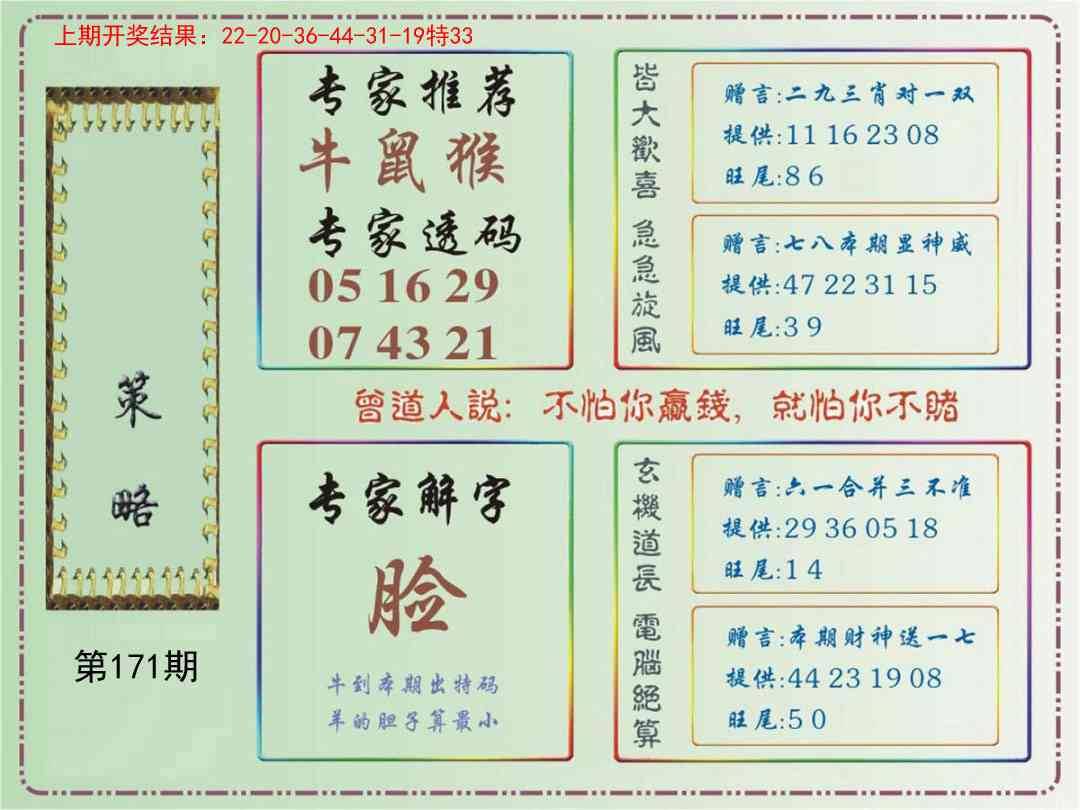 上期开奖结果：22-20-36-44-31-19特33
策略
第171期
专家推荐
牛鼠猴
专家透码
05 16 29
07 43 21
皆大歡喜
赠言:二九三肖对一双
提供:11 16 23 08
旺尾:8 6
急急旋风
赠言:七八本期显神威
提供:47 22 31 15
旺尾:3 9
曾道人説：不怕你赢錢，就怕你不賭
专家解字
脸
牛到本期出特码
羊的胆子算最小
玄機道長
赠言:六一合并三不准
提供:29 36 05 18
旺尾:1 4
電腦絕算
赠言:本期财神送一七
提供:44 23 19 08
旺尾:5 0